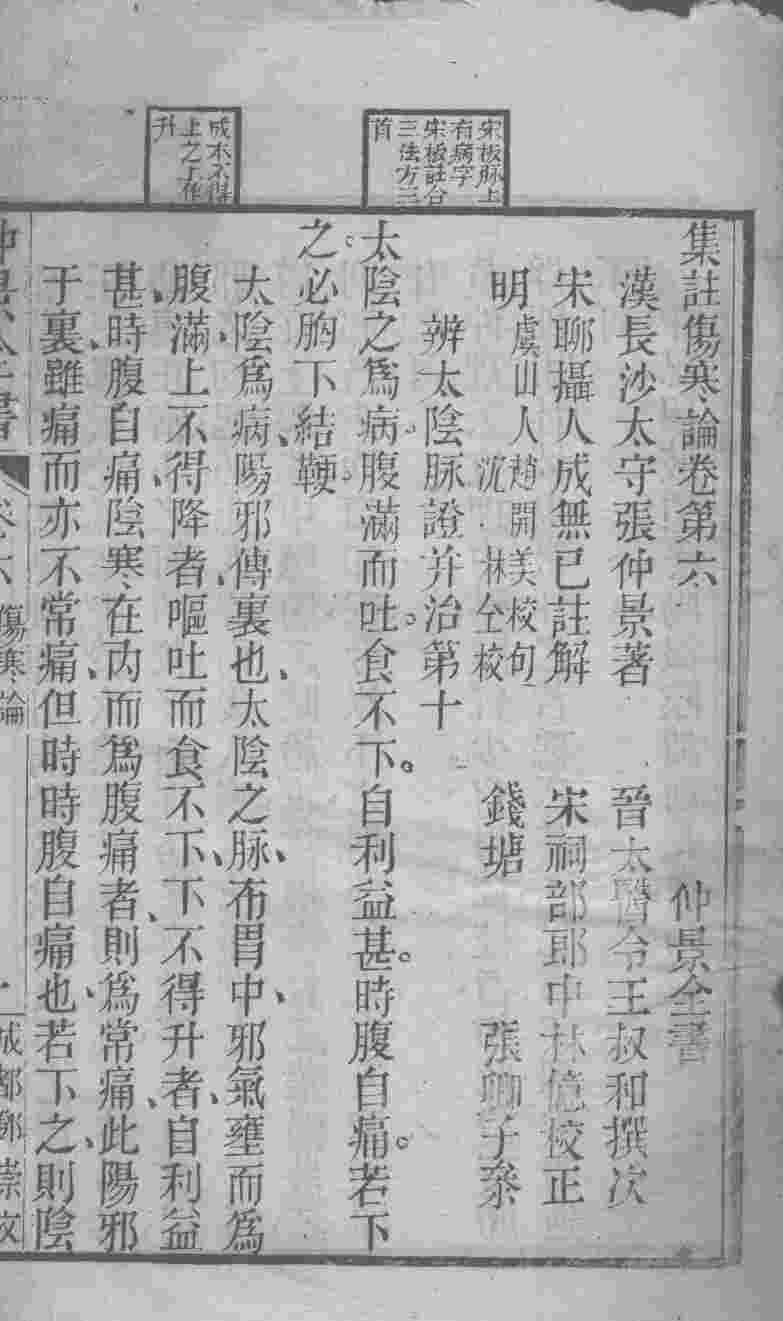 宋板脉上
有病字
宋板註合
三法方三
首
成本不得
上之上作
升
集註傷寒論卷第六
仲景全書
漢長沙太守張仲景著
晉太醫令王叔和撰次
宋聊攝人成無已註解
宋祠部郎中林億校正
明
虞山人趙開美校句
沈林仝校
錢塘
張卿子叅
辨太陰脉證并治第十
太陰之爲病腹滿而吐食不下自利益甚時腹自痛若下
之必胸下結鞕
太陰爲病陽邪傳裏也太陰之脉布胃中邪氣壅而爲
腹滿上不得降者嘔吐而食不下下不得升者自利益
甚時腹自痛陰寒在內而爲腹痛者則爲常痛此陽邪
于裏雖痛而亦不常痛但時時腹自痛也若下之則陰
傷寒論
成都鄧崇文